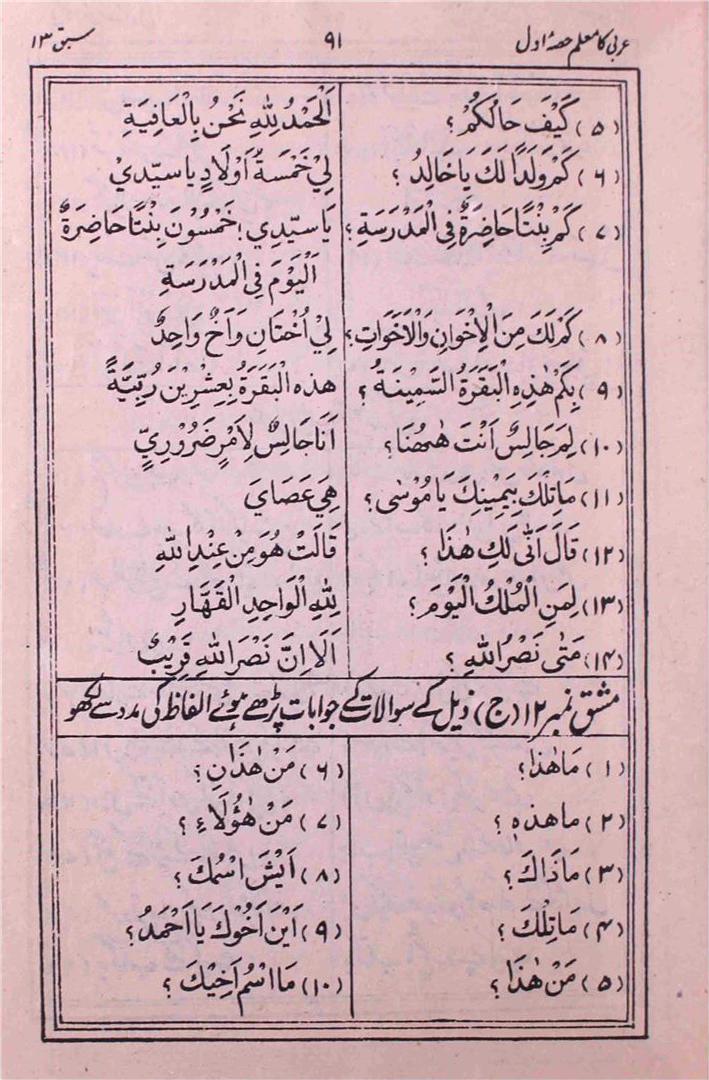 عربی کا معلم حصۂ اول ۹۱ سبق ۱۳
(۵) كَيْفَ حَالُكُمْ؟ اَلْحَمْدُ لِلّٰهِ نَحْنُ بِالْعَافِيَةِ
(۶) كَمْ وَلَدًا لَكَ يَا خَالِدُ؟ لِيْ خَمْسَةُ اَوْلَادٍ يا سَيِّدِيْ
(۷) كَمْ بِنْتًا حَاضِرَةٌ فِي الْمَدْرَسَةِ؟ يَا سَيِّدِي! خَمْسُوْنَ بِنْتًا حَاضِرَةٌ
اَلْيَوْمَ فِي الْمَدْرَسَةِ
(۸) كَمْ لَكَ مِنَ الْاِخْوَانِ وَالْاَخَوَاتِ؟ لِيْ اُخْتَانِ وَاَخٌ وَاحِدٌ
(۹) بِكَمْ هٰذِهِ الْبَقَرَةُ السَّمِيْنَةُ؟ هذه الْبَقَرَةُ بِعِشْرِيْنَ رُبِّيَّةً
(۱۰) لِمَ جَالِسٌ اَنْتَ هٰهُنَا؟ اَنَا جَالِسٌ لِاَمْرٍ ضَرُوْرِيٍّ
(۱۱) مَا تِلْكَ بِيَمِيْنِكَ يَا مُوْسٰى؟ هِيَ عَصَايَ
(۱۲) قَالَ اَنّٰى لَكِ هٰذَا؟ قَالَتْ هُوَ مِنْ عِنْدِ اللهِ
(۱۳) لِمَنِ الْمُلْكُ الْيَوْمَ؟ لِلّٰهِ الْوَاحِدِ الْقَهَّارِ
(۱۴) مَتٰى نَصْرُ اللهِ؟ اَلَا اِنَّ نَصْرَ اللهِ قَرِيْبٌ
مشق نمبر ۱۲ (ج) ذیل کے سوالات کے جوابات پڑھے ہوئے الفاظ کی مدد سے لکھو
(۱) مَا هٰذَا؟
(۲) ما هذهٖ؟
(۳) مَا ذَاكَ؟
(۴) مَا تِلْكَ؟
(۵) مَنْ هٰذَا؟
(۶) مَنْ هٰذَانِ؟
(۷) مَنْ هٰؤُلَاءِ؟
(۸) اَيْشَ اسْمُكَ؟
(۹) اَيْنَ اَخُوْكَ يَا اَحْمَدُ؟
(۱۰) مَا اسْمُ اَخِيْكَ؟